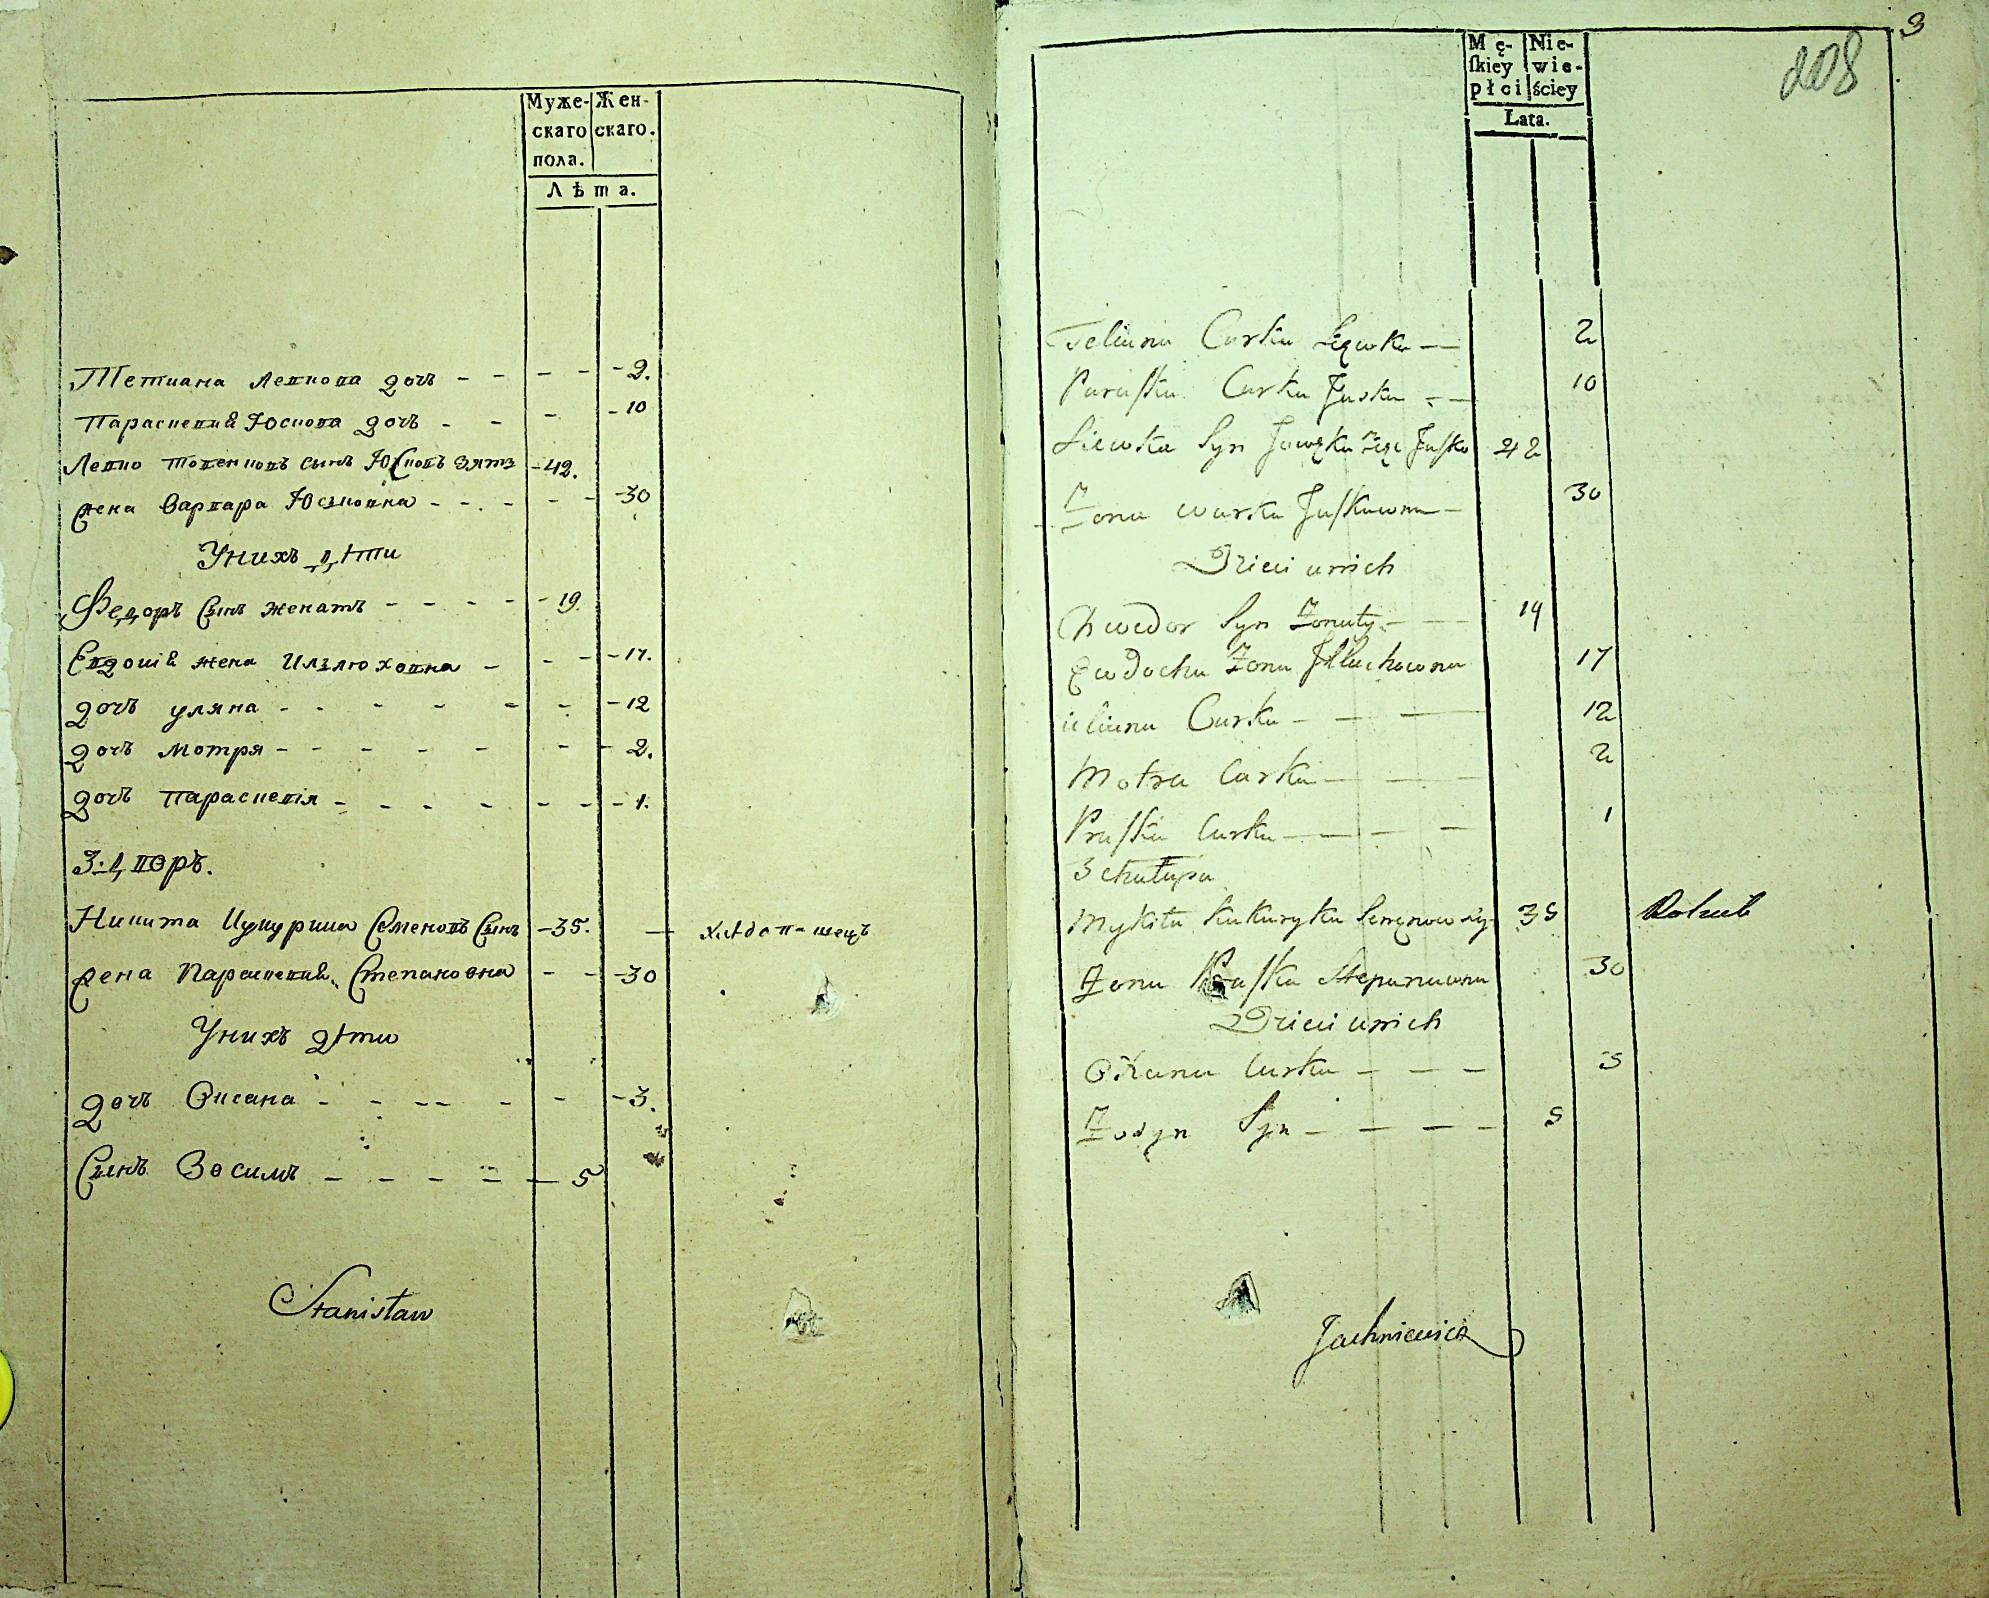 Муже- Жен-
скаго скаго.
пола.
Лѣта.
Тетиана Левкова дочъ - - - - - 2.
Параскевия Юскова дочъ - - - - 10
Левко сынъ Юсковъ зять - 42.
жена Варвара Юсковна - - - - - - 30
У нихъ дѣти
Федоръ Сынъ женатъ - - - - - 19.
Евдокия жена Илзлюховна - - - - 17.
дочъ уляна - - - - - - - 12
дочъ Мотря - - - - - - - 2.
дочъ Параскевія - - - - - - - 1.
3. дворъ.
Никита Кукурика Семеновъ Сынъ - 35. — хлѣбопашецъ
жена Параскевия Степановна - - - 30
У нихъ дѣти
дочъ Оксана - - - - - - - 3.
Сынъ Зосимъ - - - - — 5
Stanisław
3
208
Mę- Nie-
skiey wie-
płci ściey
Lata.
Teliana Curka Lewka — 2
Paraska Curka Juska - — 10
Lewko Syn Zięć Jusko 42
Żona Warka Juskowna — 30
Dzieci u nich
Chwedor Syn Żonaty - — — 19
Ewdocha Żona Illuchowna 17
uliana Curka — — — 12
Motra Curka — — — 2
Praska Curka — — — — 1
3 chałupa
Mykita Kukuryka Semenow Sy: 35 Rolnik
Żona Praska Stepanowna 30
Dzieci u nich
Oxana Curka — — — 3
Zosyn Syn — — — — 5
Jachniewicz